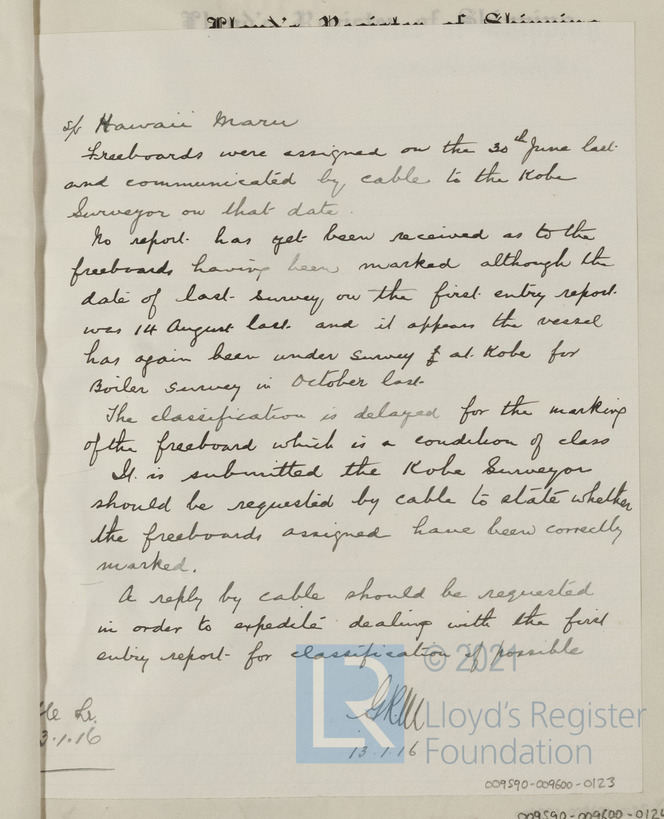 Lloyd's Register of Shipping
s/s Hawaii Maru
Freeboards were assigned on the 30th June last
and communicated by cable to the Kobe
Surveyor on that date.
No report has yet been received as to the
freeboards having been marked although the
date of last survey on the first entry report
was 14 August last and it appears the vessel
has again been under survey at Kobe for
Boiler Survey in October last
The classification is delayed for the marking
of the freeboard which is a condition of class
It is submitted the Kobe Surveyor
should be requested by cable to state whether
the freeboards assigned have been correctly
marked.
A reply by cable should be requested
in order to expedite dealing with the first
entry report for classification if possible
13.1.16
3.1.16
© 2021
Lloyd's Register
Foundation
LR
009590-009600-0123
009590-009600-012